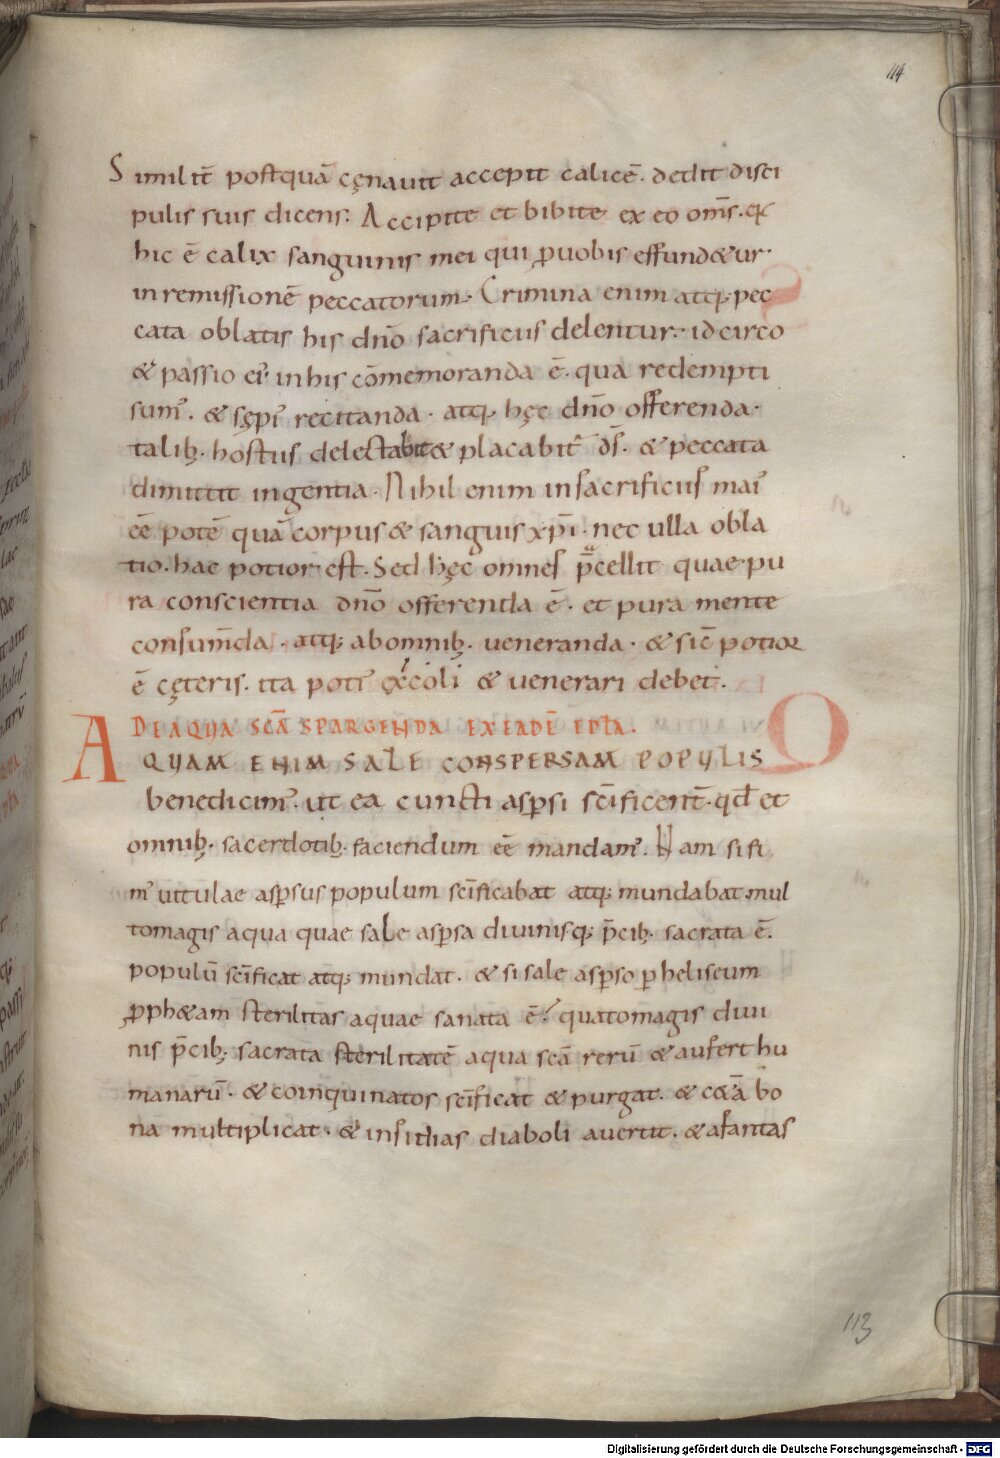 114
Similit̄ postquā cęnauit accepit calicē. dedit disci
pulis suis dicens. Accipite et bibite ex eo om̄s. q
hic ē calix sanguinis mei qui ꝓuobis effundetur.
in remissionē peccatorum. Crimina enim atq; pec
cata oblatis his dn̄o sacrificiis delentur. idcirco
& passio ei' in his cōmemoranda ē. qua redempti
sum'. & sępi' recitanda. atq; hęc dn̄o offerenda.
talib; hostiis delectabit& placabit' ds̄. & peccata
dimittit ingentia. Nihil enim in sacrificiis mai'
eē potē quā corpus & sanguis xp̄i. nec ulla obla
tio. hac potior est. Sed hęc omnes p̄cellit quae pu
ra conscientia dn̄o offerenda ē. et pura mente
consum̄da. atq; ab omnib; ueneranda. & sic̄ potior
ē cęteris. ita poti' excoli & uenerari debet.
DE AQUA SCĀ SPARGENDA EX EADĒ EPLA.
AQUAM ENIM SALE CONSPERSAM POPULIS
benedicim'. ut ea cuncti asꝑsi sc̄ificent̄. qd̄ et
omnib; sacerdotib; faciendum eē mandam'. Nam si fi
m' uitulae asꝑsus populum sc̄ificabat atq; mundabat. mul
tomagis aqua quae sale asꝑsa diuinisq; p̄cib; sacrata ē.
populū sc̄ificat atq; mundat. & si sale asꝑso ꝑ heliseum
ꝓph&am sterilitas aquae sanata ē. quatomagis diui
nis p̄cib; sacrata sterilitatē aqua scā rerū & aufert hu
manarū. & coinquinatos sc̄ificat & purgat. & c&ā bo
na multiplicat. & insidias diaboli auertit. & afantas
113
Digitalisierung gefördert durch die Deutsche Forschungsgemeinschaft - DFG